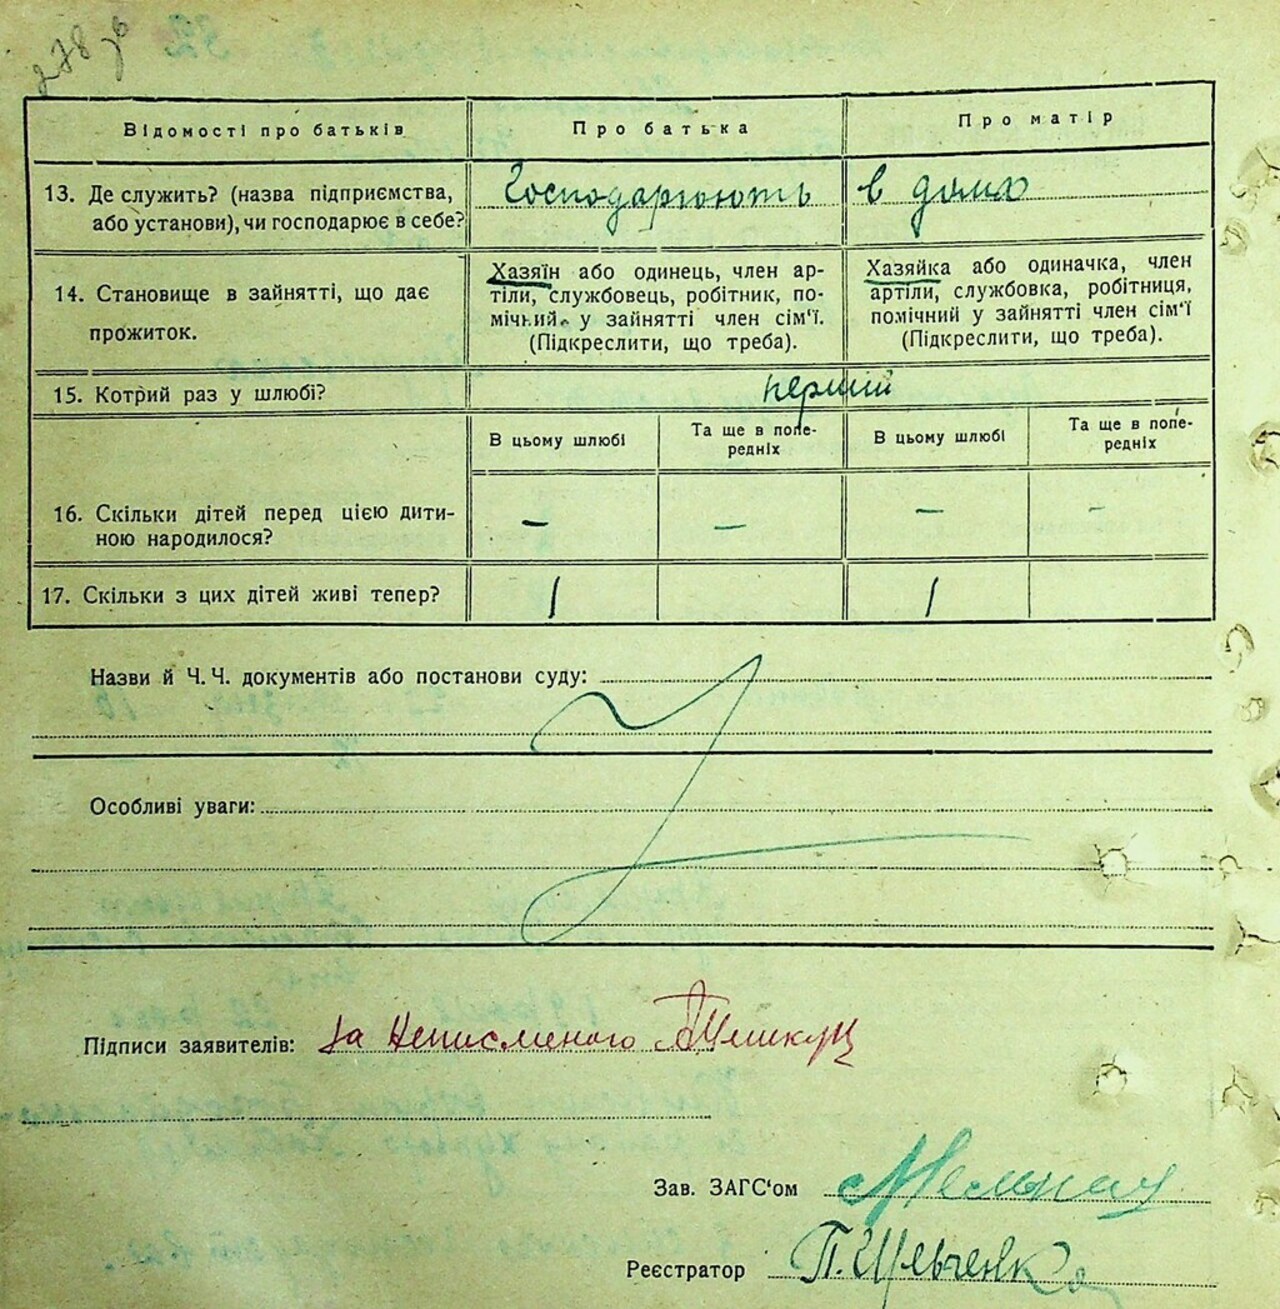 278 зв
Відомості про батьків
Про батька
Про матір
13. Де служить? (назва підприємства,
або установи), чи господарює в себе?
Господарюють
в дома
14. Становище в зайнятті, що дає
прожиток.
Хазяїн або одинець, член ар-
тіли, службовець, робітник, по-
мічний у зайнятті член сім'ї.
(Підкреслити, що треба).
Хазяйка або одиначка, член
артіли, службовка, робітниця,
помічний у зайнятті член сім'ї
(Підкреслити, що треба).
15. Котрий раз у шлюбі?
перший
В цьому шлюбі
Та ще в попе-
редніх
В цьому шлюбі
Та ще в попе-
редніх
16. Скільки дітей перед цією дити-
ною народилося?
–
–
–
–
17. Скільки з цих дітей живі тепер?
1
1
Назви й Ч. Ч. документів або постанови суду:
Особливі уваги:
Підписи заявителів: За Неписменого
Зав. ЗАГС'ом Мельник
Реєстратор П. Шевченко